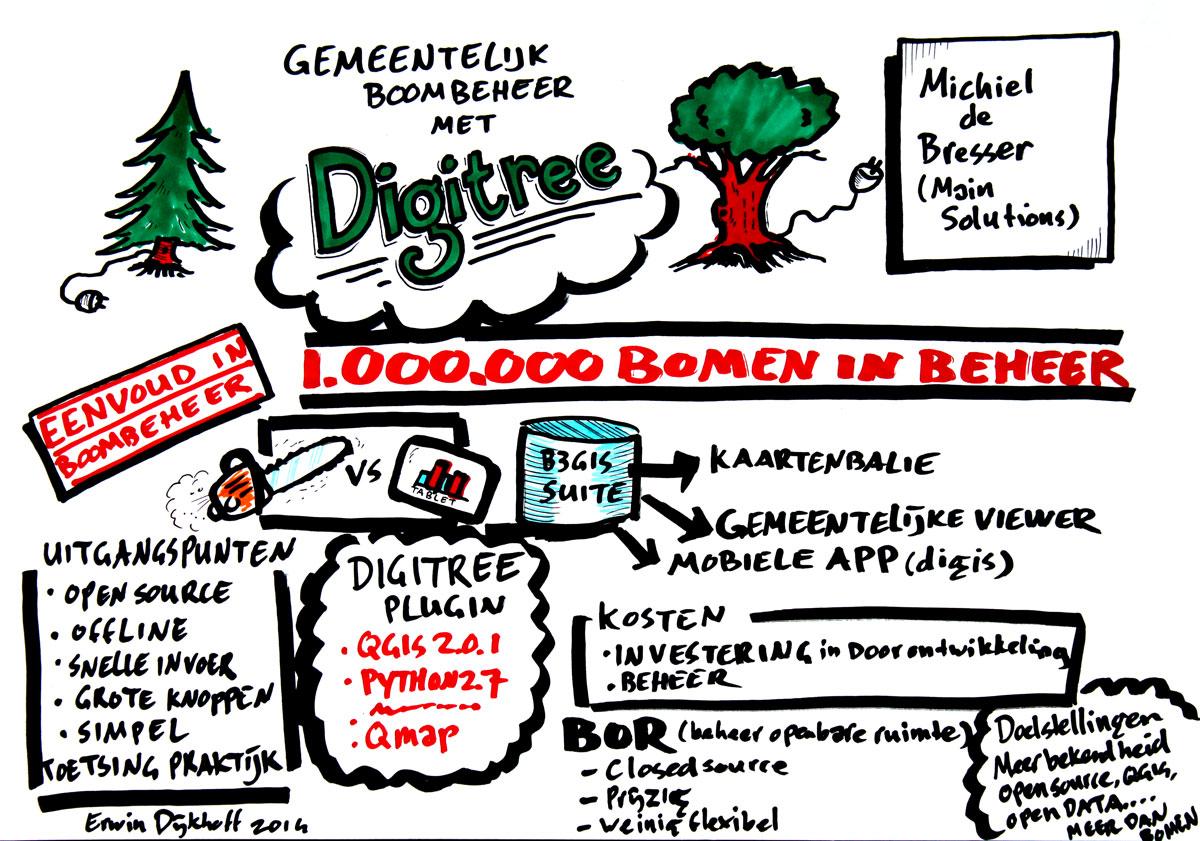 GEMEENTELIJK
BOOMBEHEER
MET
Digitree
Michiel
de
Bresser
(Main
Solutions)
1.000.000 BOMEN IN BEHEER
EENVOUD IN
BOOMBEHEER
VS
TABLET
B3GIS
SUITE
KAARTENBALIE
GEMEENTELIJKE VIEWER
MOBIELE APP (digis)
UITGANGSPUNTEN
· OPEN SOURCE
· OFFLINE
· SNELLE INVOER
· GROTE KNOPPEN
· SIMPEL
TOETSING PRAKTIJK
Erwin Dijkhoff 2014
DIGITREE
PLUGIN
· QGIS 2.0.1
· PYTHON 2.7
: Qmap
KOSTEN
· INVESTERING in Doorontwikkeling
· BEHEER
BOR (beheer openbare ruimte)
- Closed source
- Prijzig
- weinig flexibel
Doelstellingen
Meer bekendheid
open source, QGIS,
open DATA....
MEER DAN
BOMEN